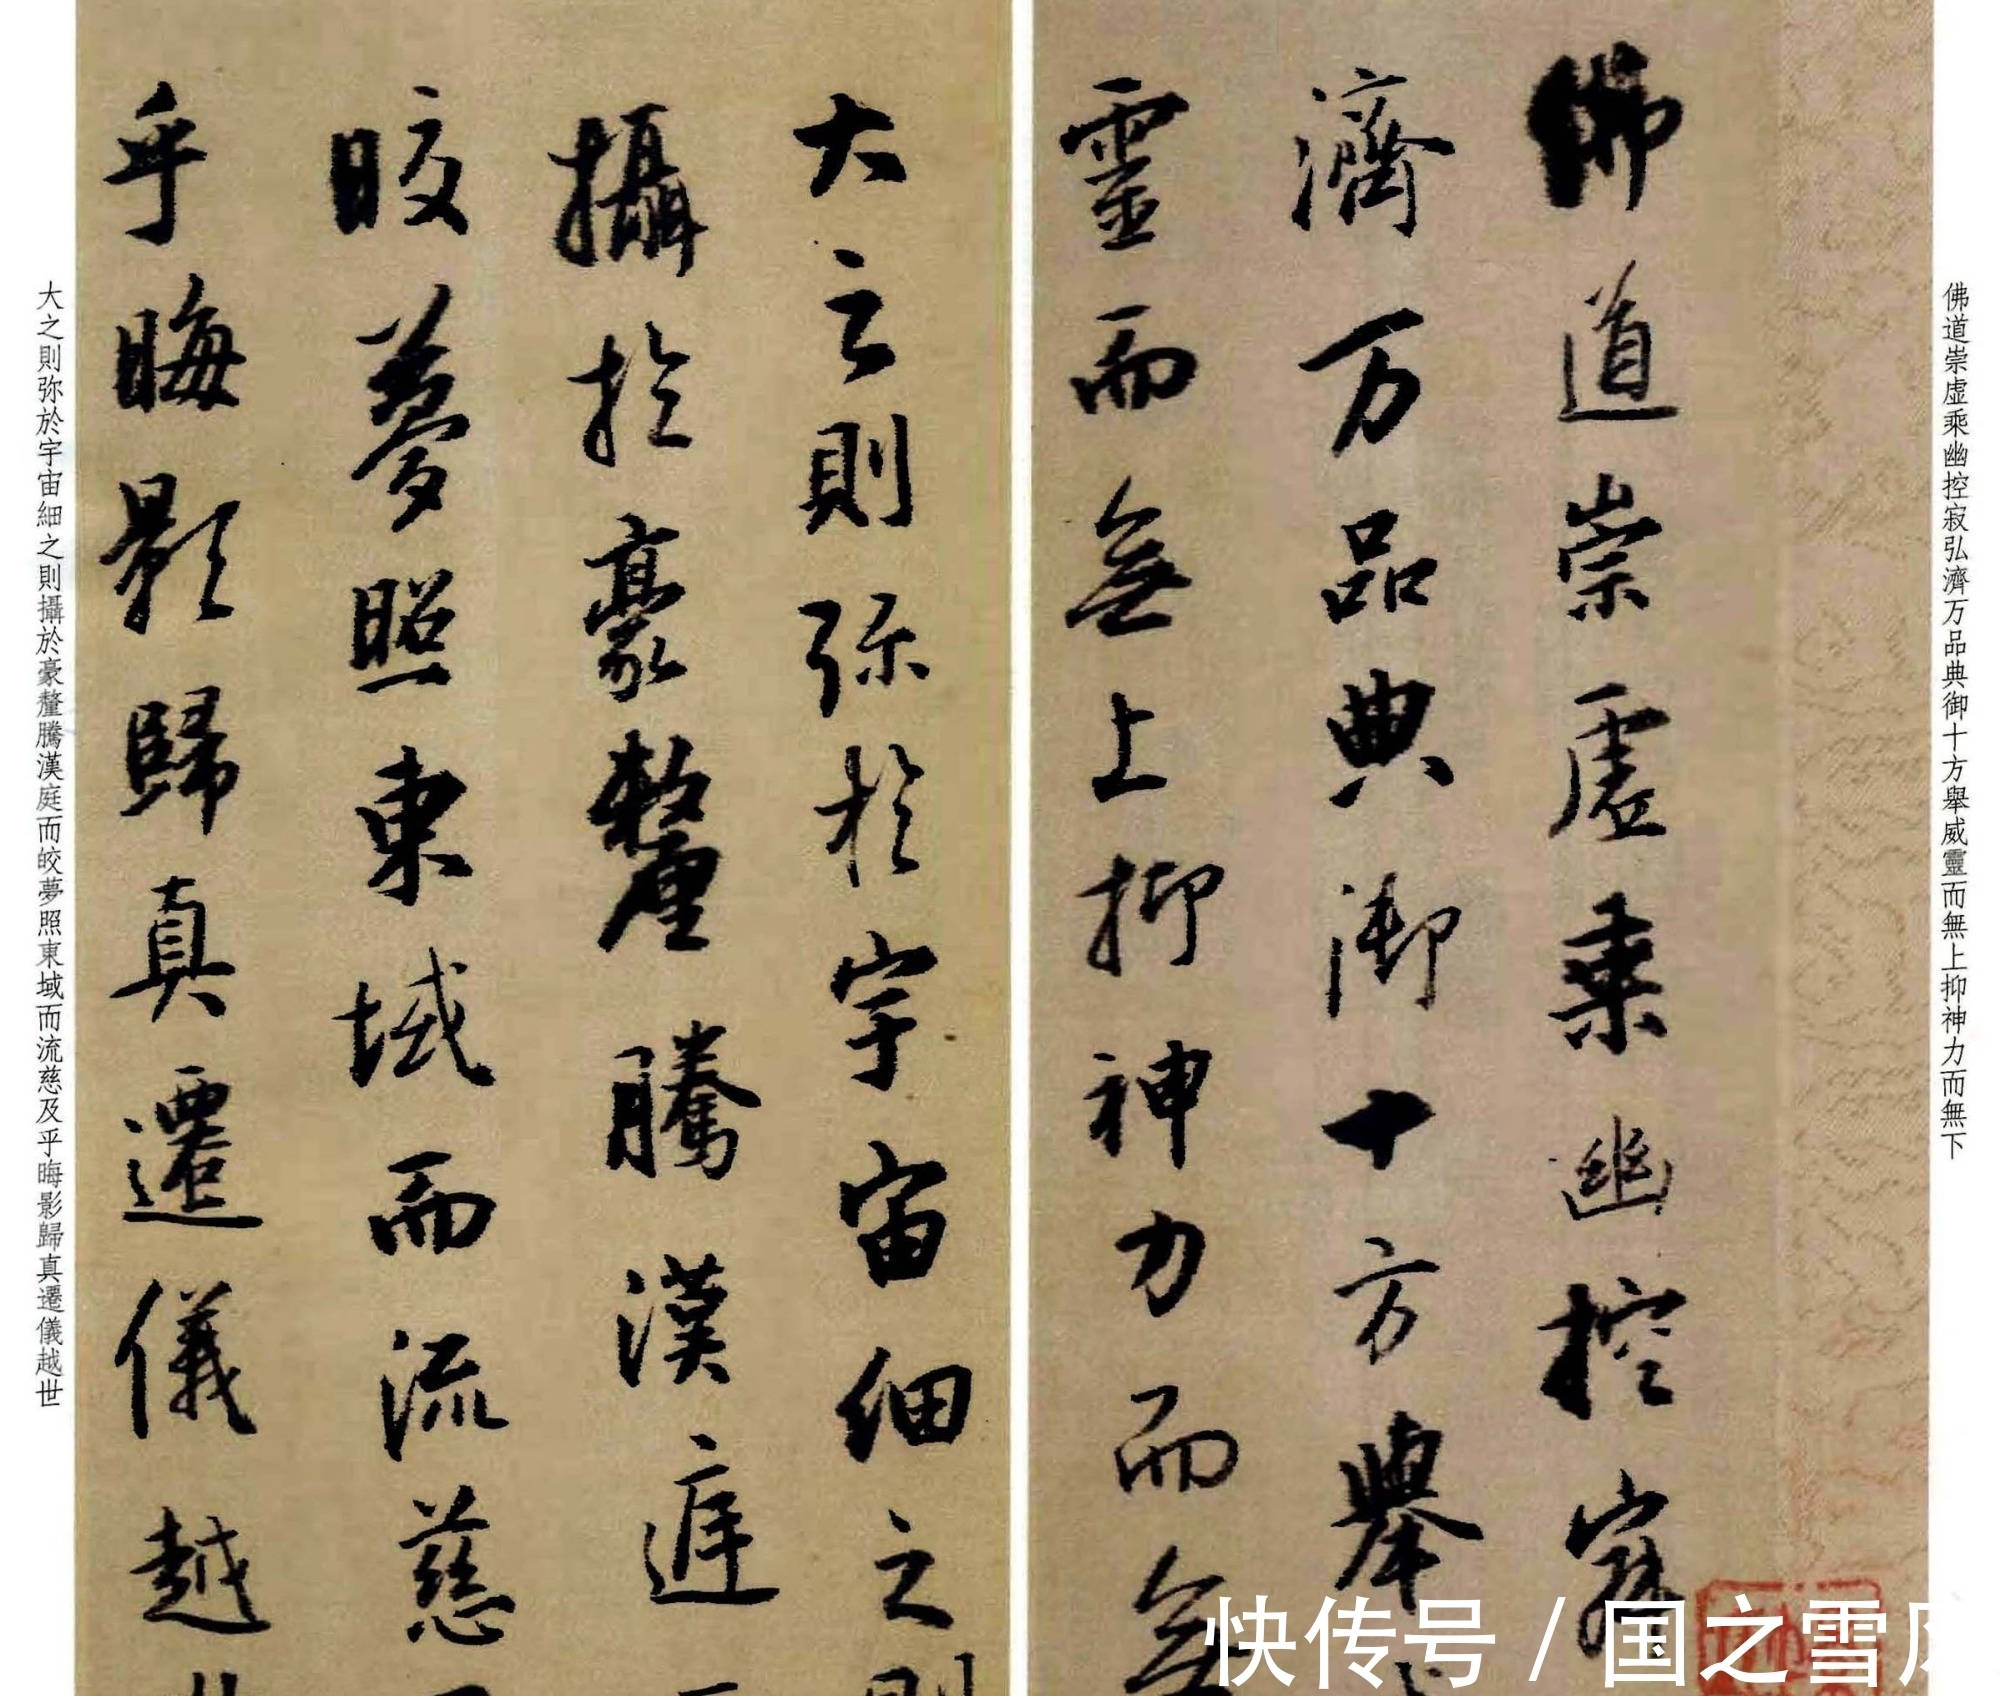 佛道崇虛乘幽控寂弘濟万品典御十方舉威靈而無上抑神力而無下
佛道崇虛乘幽控寂
濟万品典御十方舉
靈而無上抑神力而無
大之則弥於宇宙細之則
攝於豪釐騰漢庭
皎夢照東域而流慈
乎晦影歸真遷儀越
大之則弥於宇宙細之則攝於豪釐騰漢庭而皎夢照東域而流慈及乎晦影歸真遷儀越世
快传号/国之雪